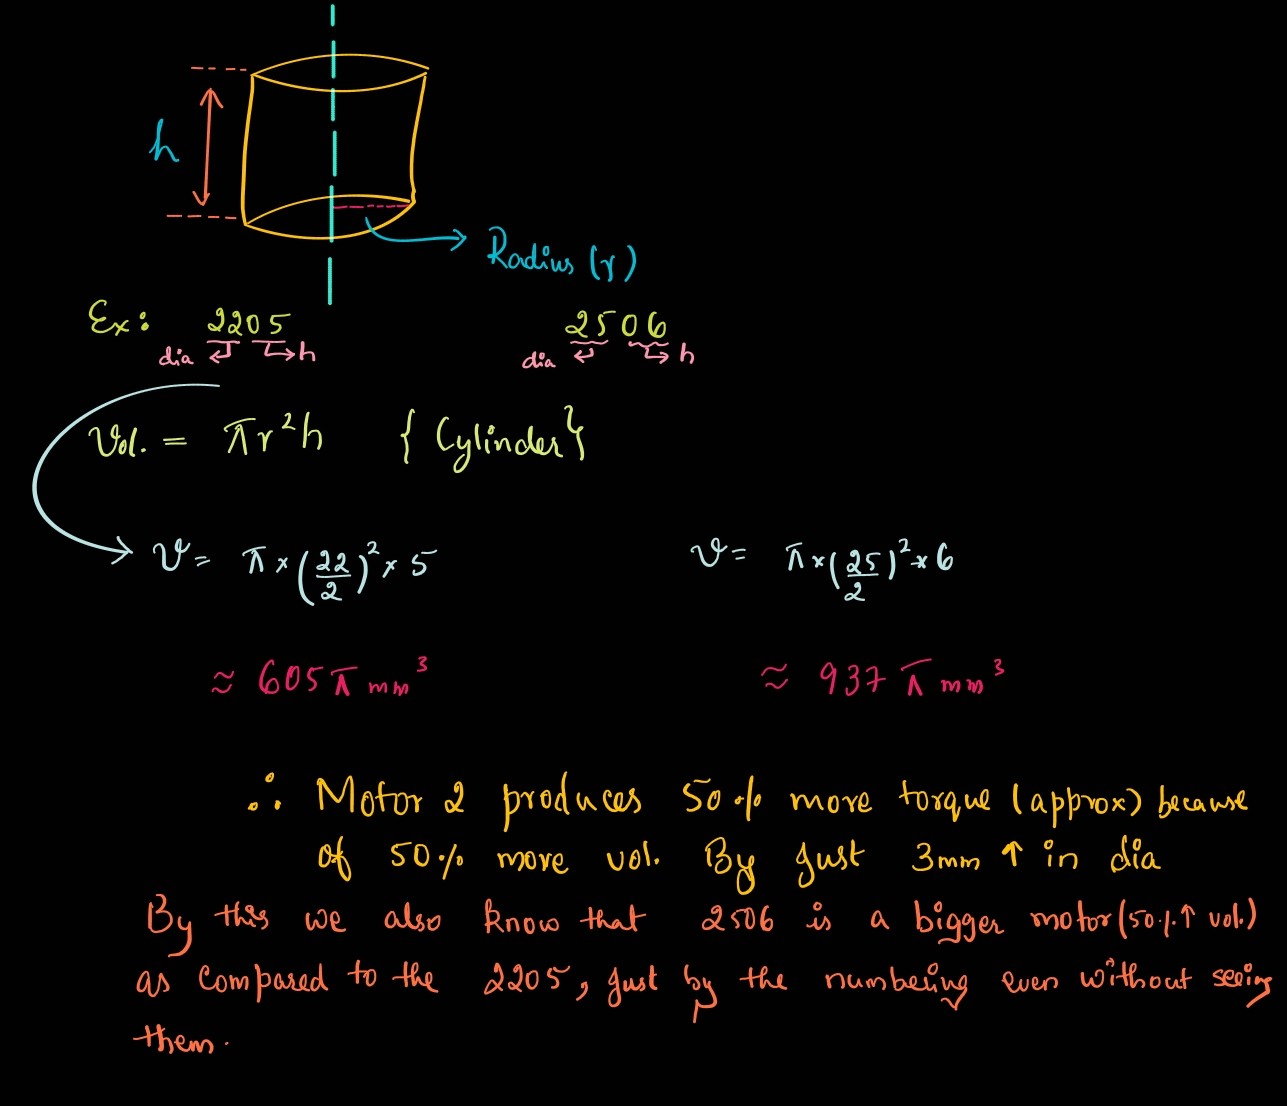 h
Radius (r)
Ex: 2205 2506
dia h dia h
Vol. = πr²h { Cylinder }
V = π × (22/2)² × 5 V = π × (25/2)² × 6
≈ 605 π mm³ ≈ 937 π mm³
∴ Motor 2 produces 50% more torque (approx) because
of 50% more vol. By just 3mm ↑ in dia
By this we also know that 2506 is a bigger motor (50%↑ vol.)
as compared to the 2205, just by the numbering even without seeing
them.